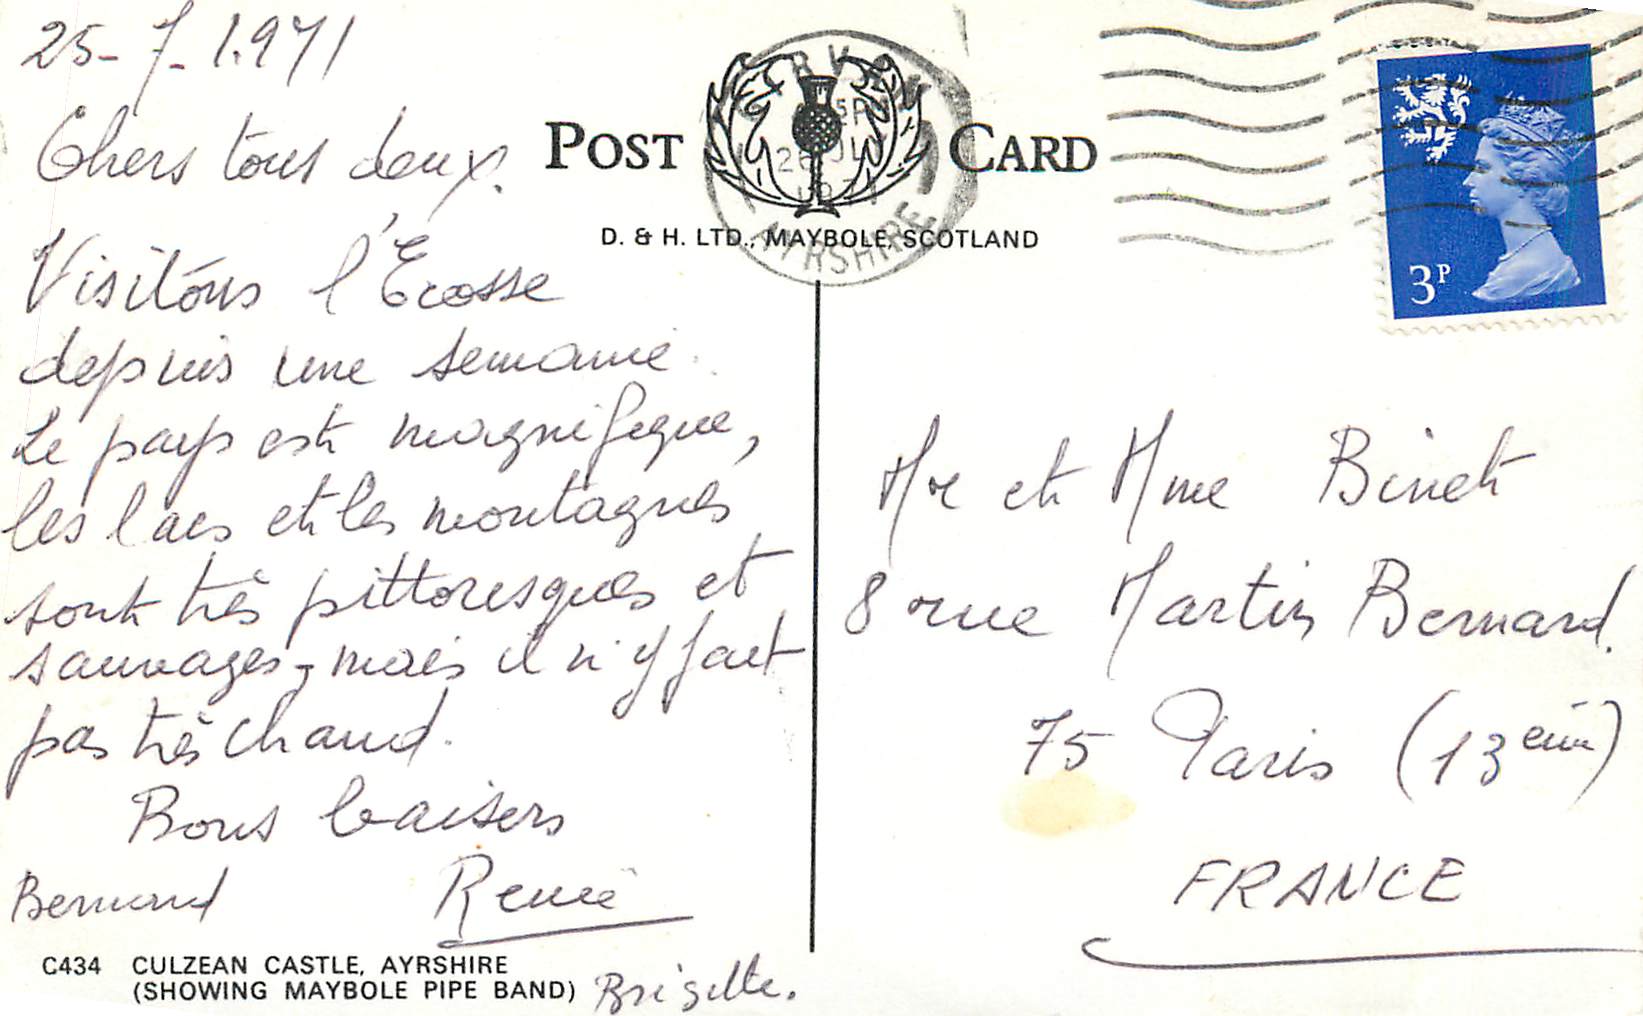 25-7-1.971
Chers tous deux.
Visitons l'Ecosse
depuis une semaine.
Le pays est magnifique,
les lacs et les montagnes
sont très pittoresques et
sauvages, mais il n'y fait
pas très chaud.
Bons baisers
Bernard Renée
Brigitte.
C434 CULZEAN CASTLE, AYRSHIRE
(SHOWING MAYBOLE PIPE BAND)
POST CARD
D. & H. LTD., MAYBOLE, SCOTLAND
GIRVAN
26 JL
1971
AYRSHIRE
3P
Mr et Mme Binet
8 rue Martin Bernard.
75 Paris (13ème)
FRANCE